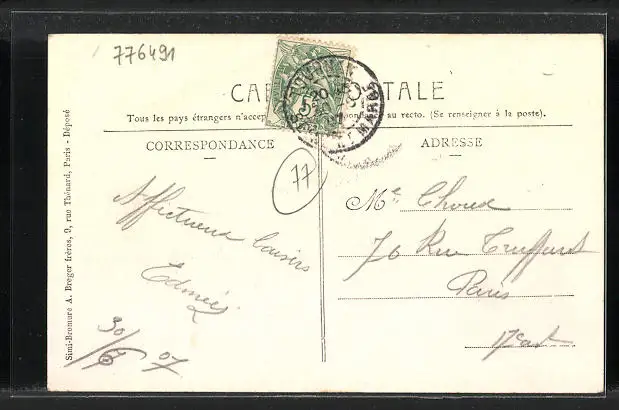 776491
CA O TALE
Tous les pays étrangers n'accep ondance au recto. (Se renseigner à la poste).
CORRESPONDANCE
ADRESSE
77
5
Affectueux baisers
Edmée
30/6 07
Me Choux
76 Rue Truffaut
Paris
17e art
Simi-Bromure A. Breger frères, 9, rue Thénard, Paris - Déposé